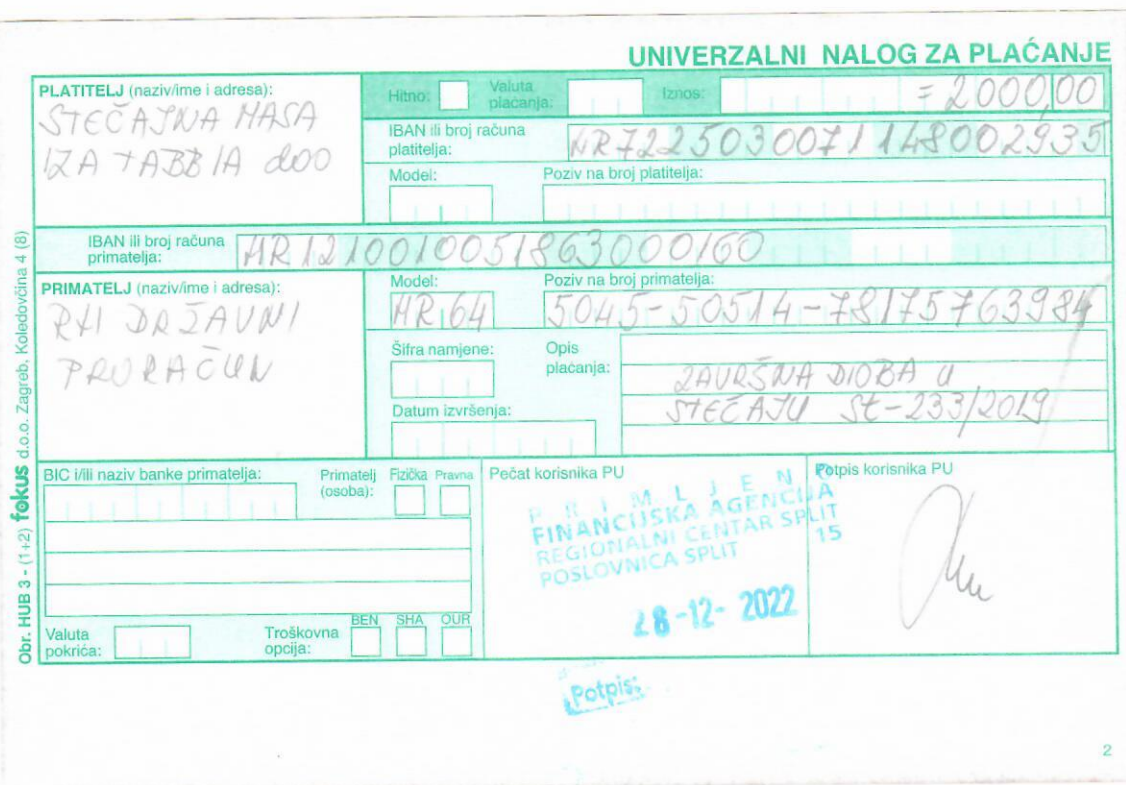 UNIVERZALNI NALOG ZA PLAĆANJE
PLATITELJ (naziv/ime i adresa):
STEČAJNA MASA
IZA TABBIA doo
Hitno:
Valuta plaćanja:
Iznos:
=2000,00
IBAN ili broj računa platitelja:
HR7225030071148002935
Model:
Poziv na broj platitelja:
IBAN ili broj računa primatelja:
HR1210010051863000160
PRIMATELJ (naziv/ime i adresa):
RH DRŽAVNI
PRORAČUN
Model:
HR64
Poziv na broj primatelja:
5045-50514-78175763984
Šifra namjene:
Opis plaćanja:
ZAVRŠNA DIOBA U
STEČAJU St-233/2019
Datum izvršenja:
BIC i/ili naziv banke primatelja:
Primatelj (osoba):
Fizička
Pravna
Valuta pokrića:
Troškovna opcija:
BEN
SHA
OUR
Pečat korisnika PU
PRIMLJENO
FINANCIJSKA AGENCIJA
REGIONALNI CENTAR SPLIT
POSLOVNICA SPLIT 15
28-12-2022
Potpis:
Potpis korisnika PU
Obr. HUB 3 - (1+2) fokus d.o.o. Zagreb, Koledovčina 4 (8)
2